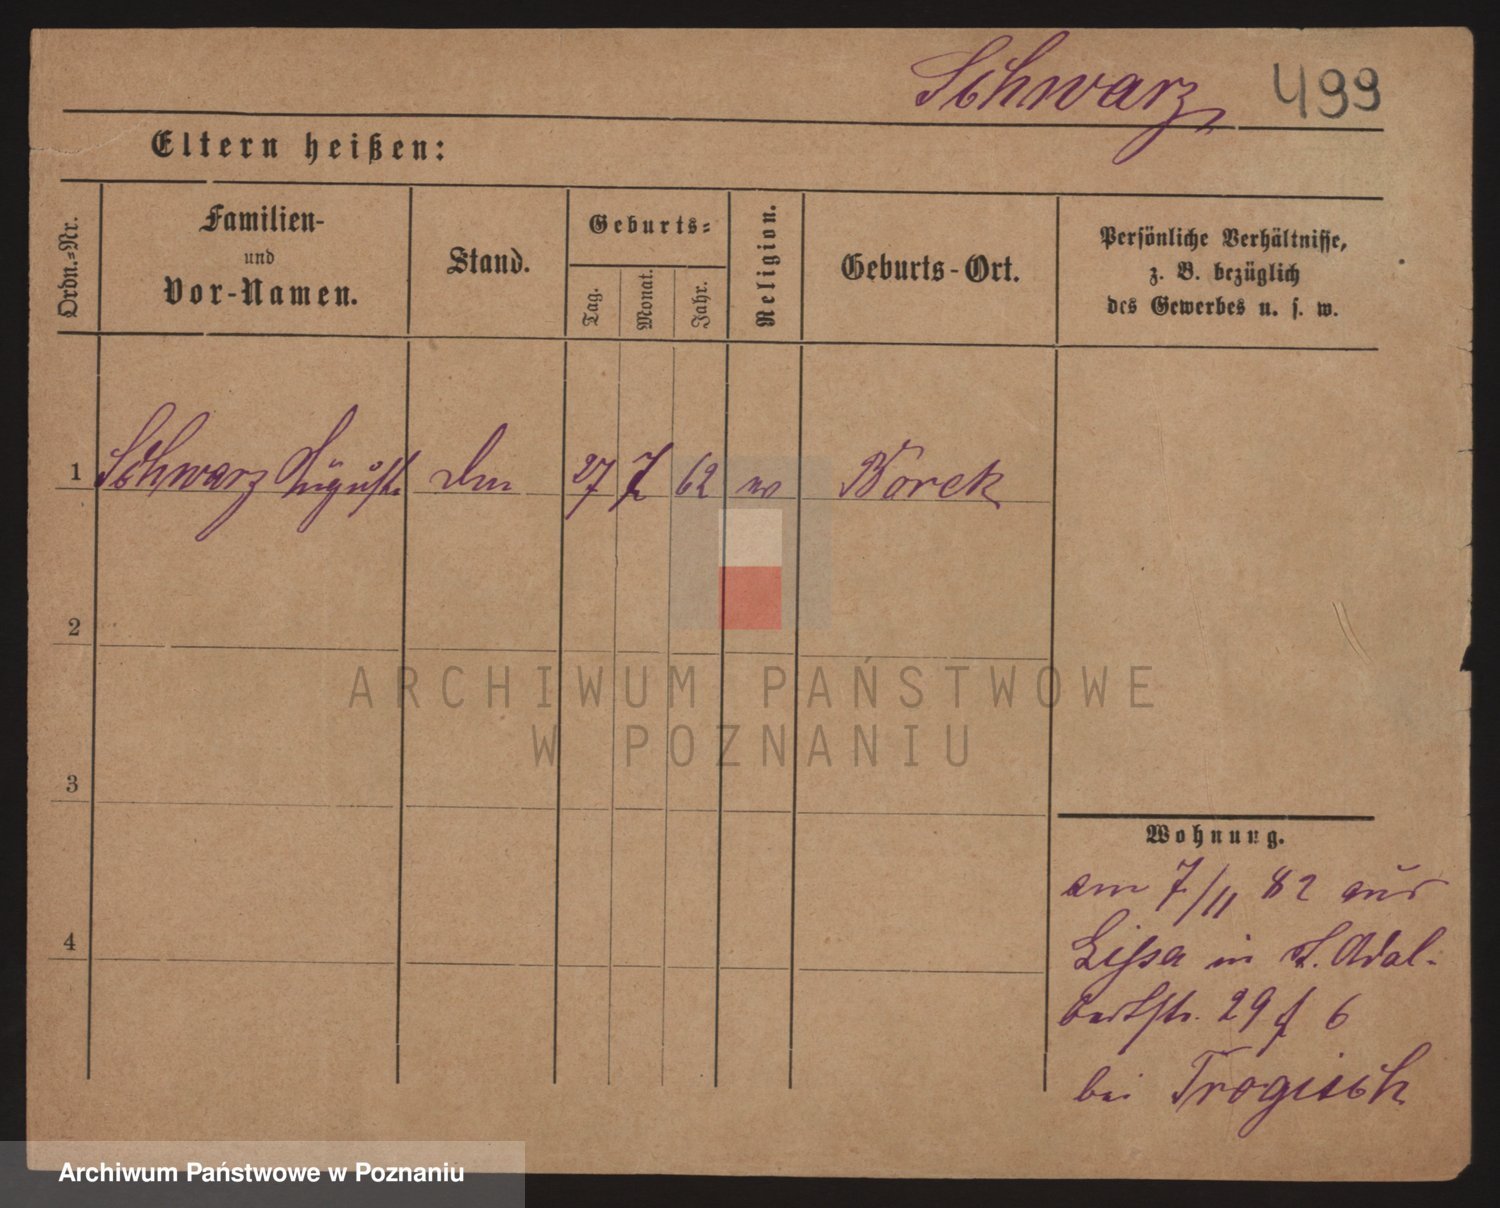 Schwarz 499
Eltern heißen:
Ordn.=Nr.
Familien-
und
Vor-Namen.
Stand.
Geburts=
Tag.
Monat.
Jahr.
Religion.
Geburts-Ort.
Persönliche Verhältnisse,
z. B. bezüglich
des Gewerbes u. s. w.
1 Schwarz Auguste 27 7 62 Borek
2
3
4
Wohnung.
am 7/11 82 aus
Lissa in St. Adal-
bertstr. 29 6
bei Trogisch
ARCHIWUM PAŃSTWOWE
W POZNANIU
Archiwum Państwowe w Poznaniu